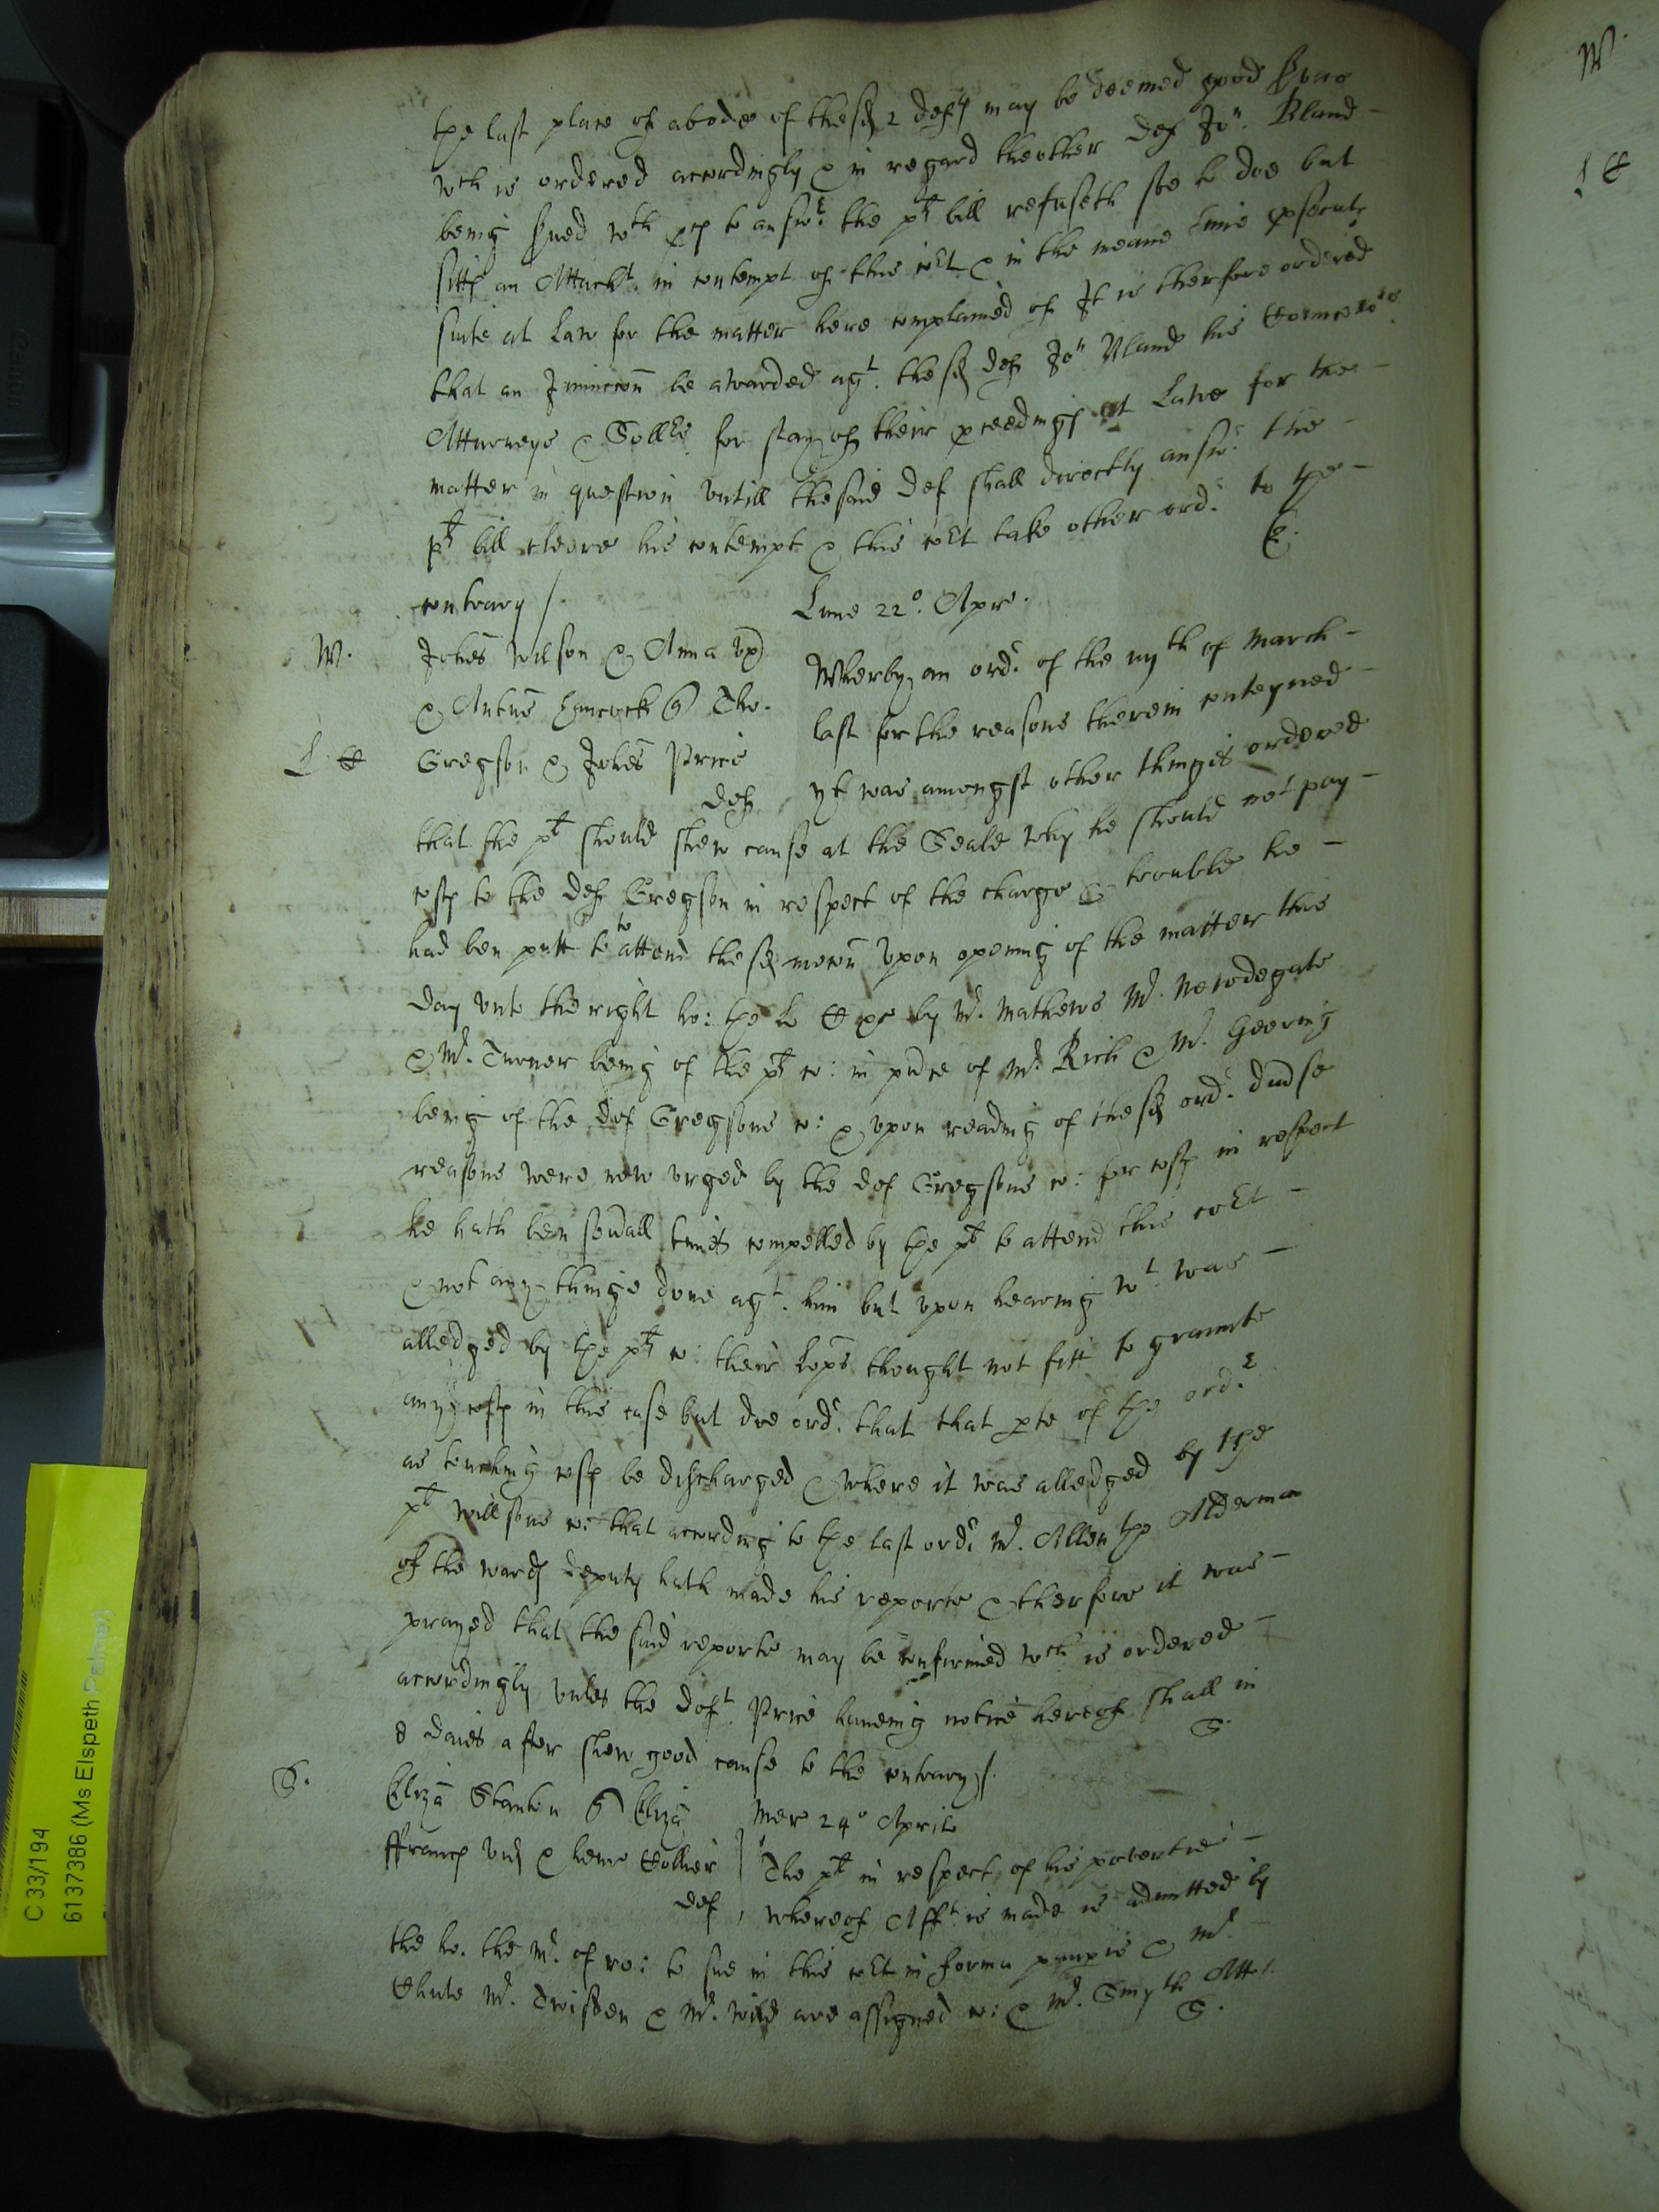 the last place of abode of the sd 2 defts may be deemed good srvce
wch is ordered accordingly & in regard the other def Jon. Bland
being srved wth pces to answr. the pt bill refuseth soe to doe but
sitts an Attachmt. in contempt of this cort & in the meane time psecuts
suite at Law for the matter here complained of It is therfore ordered
that an Iniunccon be awarded agt. the sd def Jon Bland his Councello
Attorneys & Sollrs for stay of their pceedings at Lawe for the
matter in question vntill the said def shall directly answr. the
pt bill cleere his contempt & this cort take other ordr. to the
contrary /.
E.
Lune 22o. Apre.
W.
Johes Wilson & Anna vx
& Antus Hincock Tho.
L H
Gregson & Johes Price
def
Wherby an ordr. of the iiijth of March
last for the reasons therein conteyned
yt was amongst other things ordered
that the pt should shew cause at the Seale why he should not pay
costs to the def Gregson in respect of the charge & trouble he
had ben putt to to attend the sd mocon Vpon opening of the matter this
day vnto the right ho: the by Mr. Mathews Mr. Newdegate
& Mr. Turner being of the pt co: in pnce of Mr. Rich & Mr. Geering
being of the def Gregsons co: & vpon reading of the sd ordr. divse
reasons were now vrged by the def Gregsons co: for costs in respect
he hath ben sevall times compelled by the pt to attend this cort
& not any thinge done agt. him but vpon hearing wt. was
alledged by the pt co: their Lopps thought not fitt to graunte
any costs in this case but doe ordr. that that pte of the ordr.
as touching costs be discharged & where it was alledged by the
pt Willsons co: that according to the last ordr Mr. Allen the Alderman
of the wards deputy hath made his reporte & therfore it was
prayed that the said reporte may be confirmed wch is ordered
accordingly vnles the deft. Price haveing notice hereof shall in
8 daies after shew good cause to the contrary /.
S.
S.
Eliza Stanton Eliza
ffrancs vid & Collier
def
Mer 24o Aprile
The pt in respect of his povertie
whereof Afft. is made is admitted by
the ho. the Mr. of ro: to sue in this cort in forma paupis & Mr.
Chute Mr. Twisden & Mr. Wild are assigned co: & Mr. Smyth Att.
S.
W.
L H
C 33/194
6137386 (Ms Elspeth Palmer)
Canon